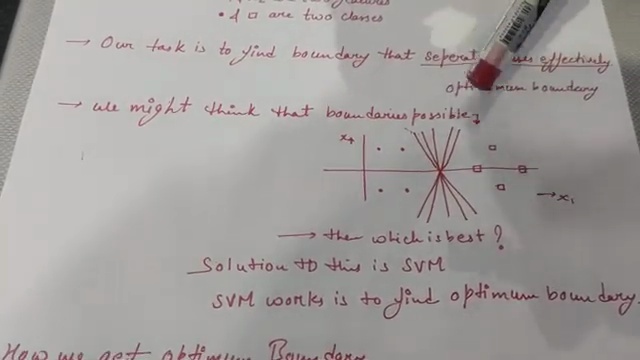 • & □ are two classes
→ Our task is to find boundary that effectively
boundary
→ we might think that boundaries possible
x₁
→ then which is best?
Solution to this is SVM
SVM works is to find optimum boundary.
How we get optimum Boundary